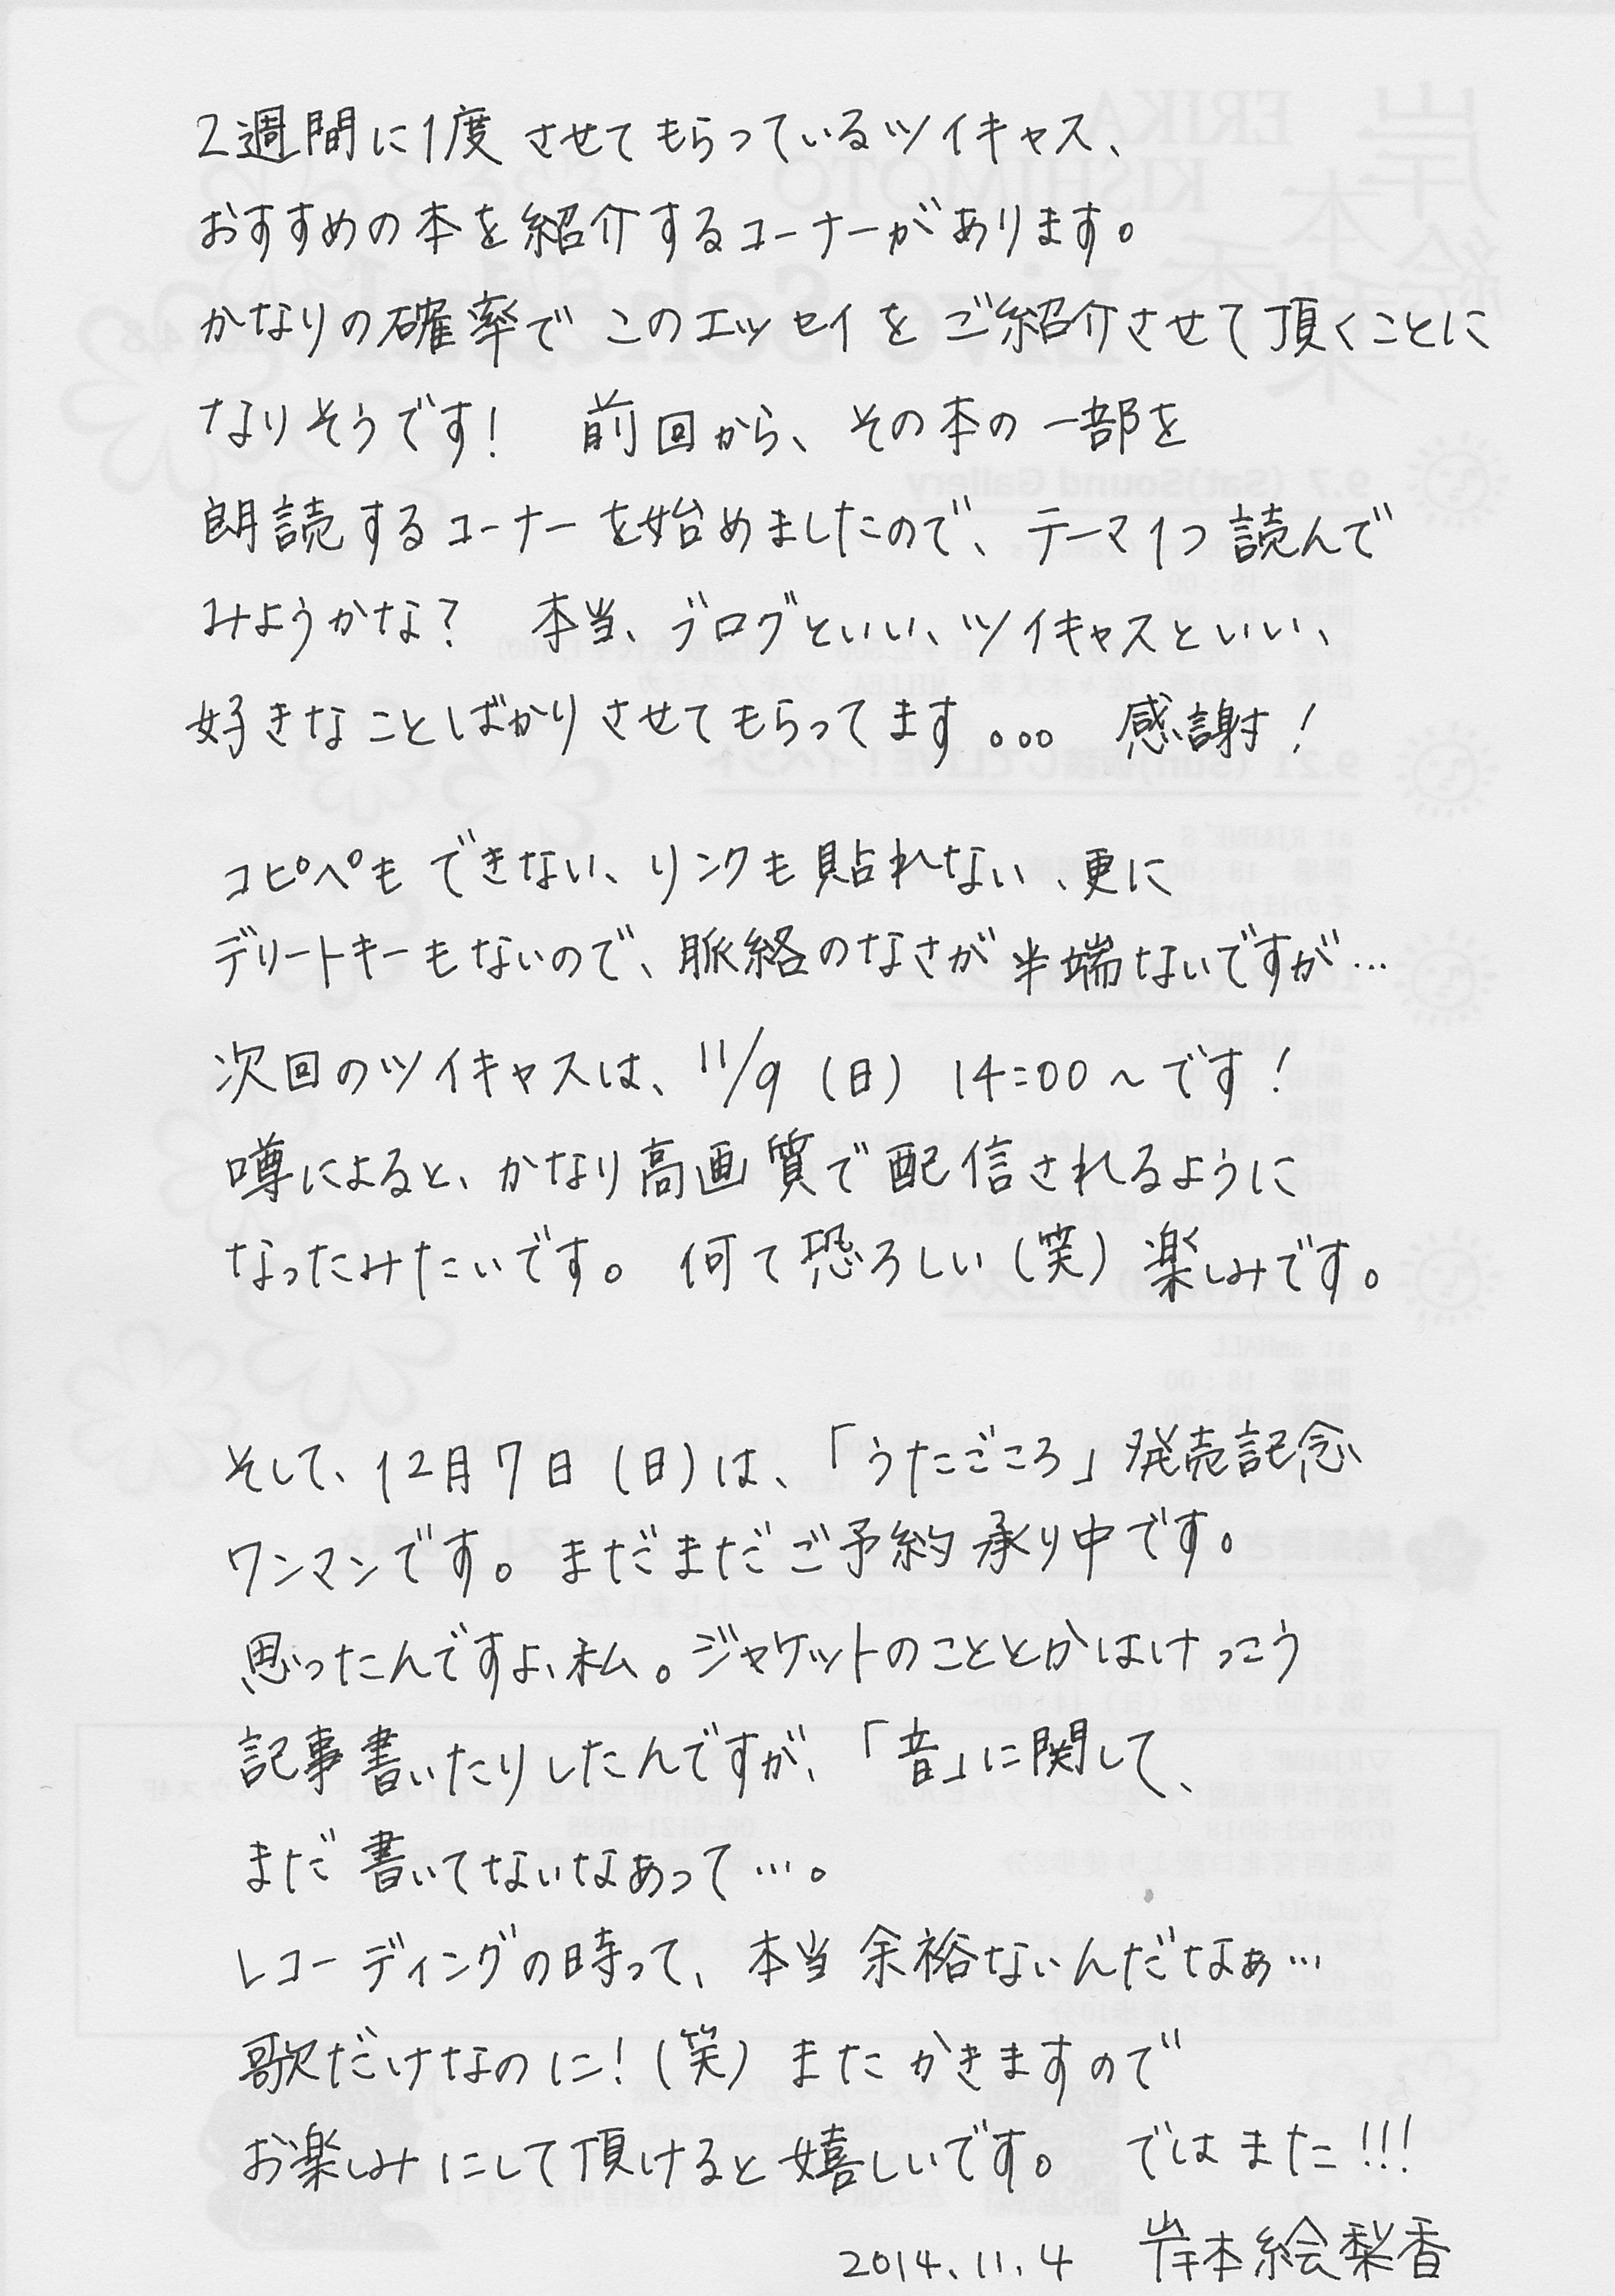 2週間に1度させてもらっているツイキャス、
おすすめの本を紹介するコーナーがあります。
かなりの確率でこのエッセイをご紹介させて頂くことに
なりそうです! 前回から、その本の一部を
朗読するコーナーを始めましたので、テーマ1つ読んで
みようかな? 本当、ブログといい、ツイキャスといい、
好きなことばかりさせてもらってます。。。 感謝!
コピペもできない、リンクも貼れない、更に
デリートキーもないので、脈絡のなさが半端ないですが…
次回のツイキャスは、11/9(日) 14:00~です!
噂によると、かなり高画質で配信されるように
なったみたいです。何て恐ろしい(笑)楽しみです。
そして、12月7日(日)は、「うたごころ」発売記念
ワンマンです。まだまだご予約承り中です。
思ったんですよ、私。ジャケットのこととかはけっこう
記事書いたりしたんですが、「音」に関して、
まだ書いてないなあって…。
レコーディングの時って、本当余裕ないんだなぁ…
歌だけなのに!(笑)またかきますので
お楽しみにして頂けると嬉しいです。 ではまた!!!
2014.11.4 岸本絵梨香